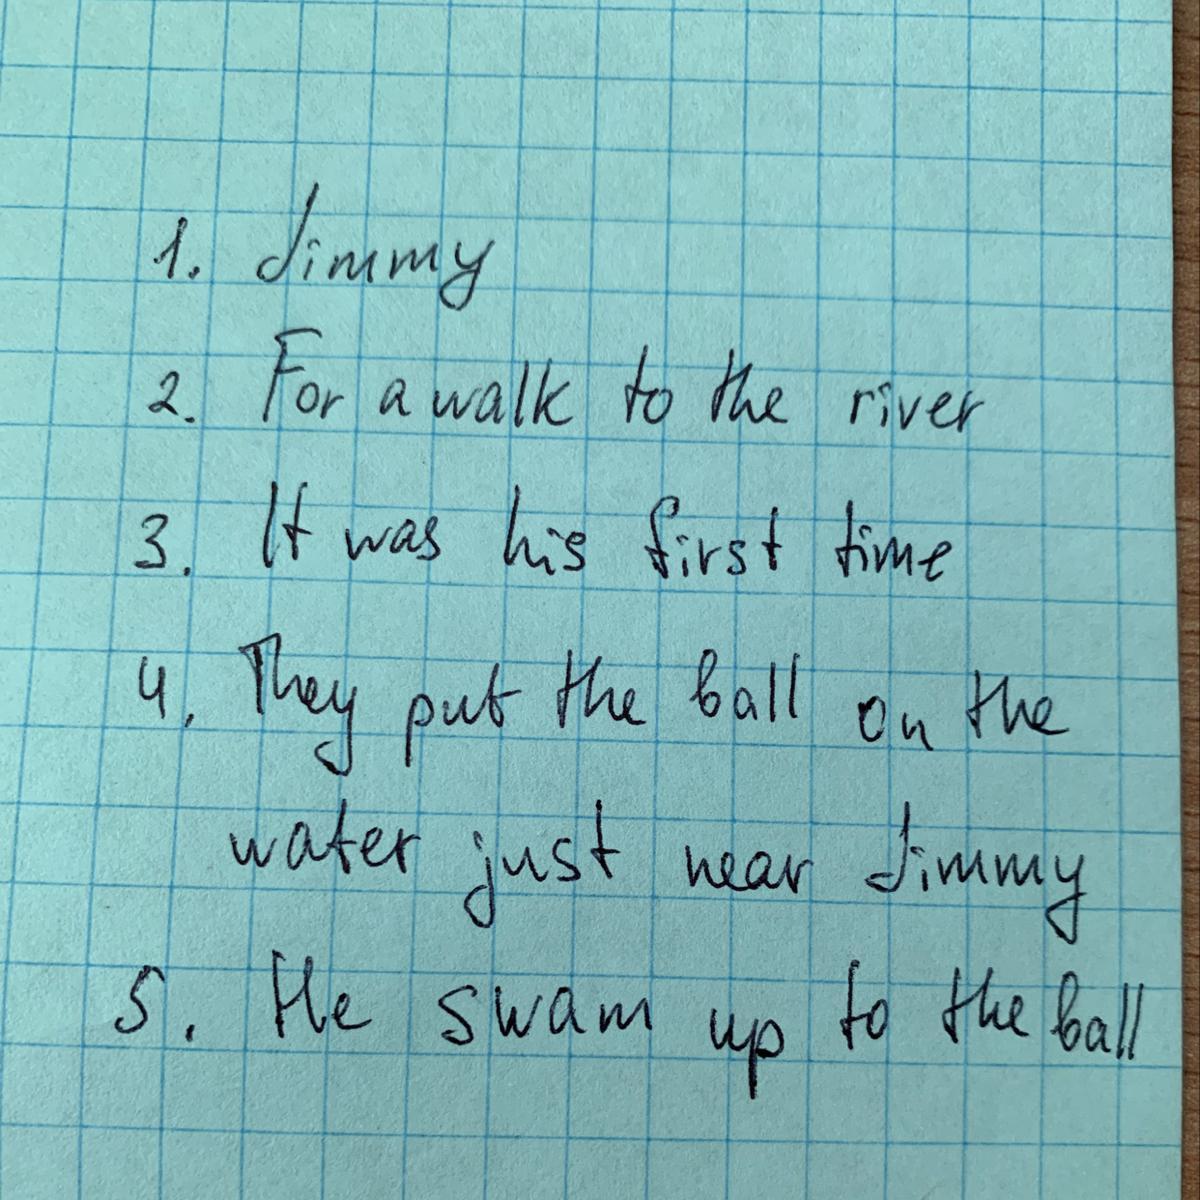 1. Jimmy
2. For a walk to the river
3. It was his first time
4. They put the ball on the
water just near Jimmy
5. He swam up to the ball